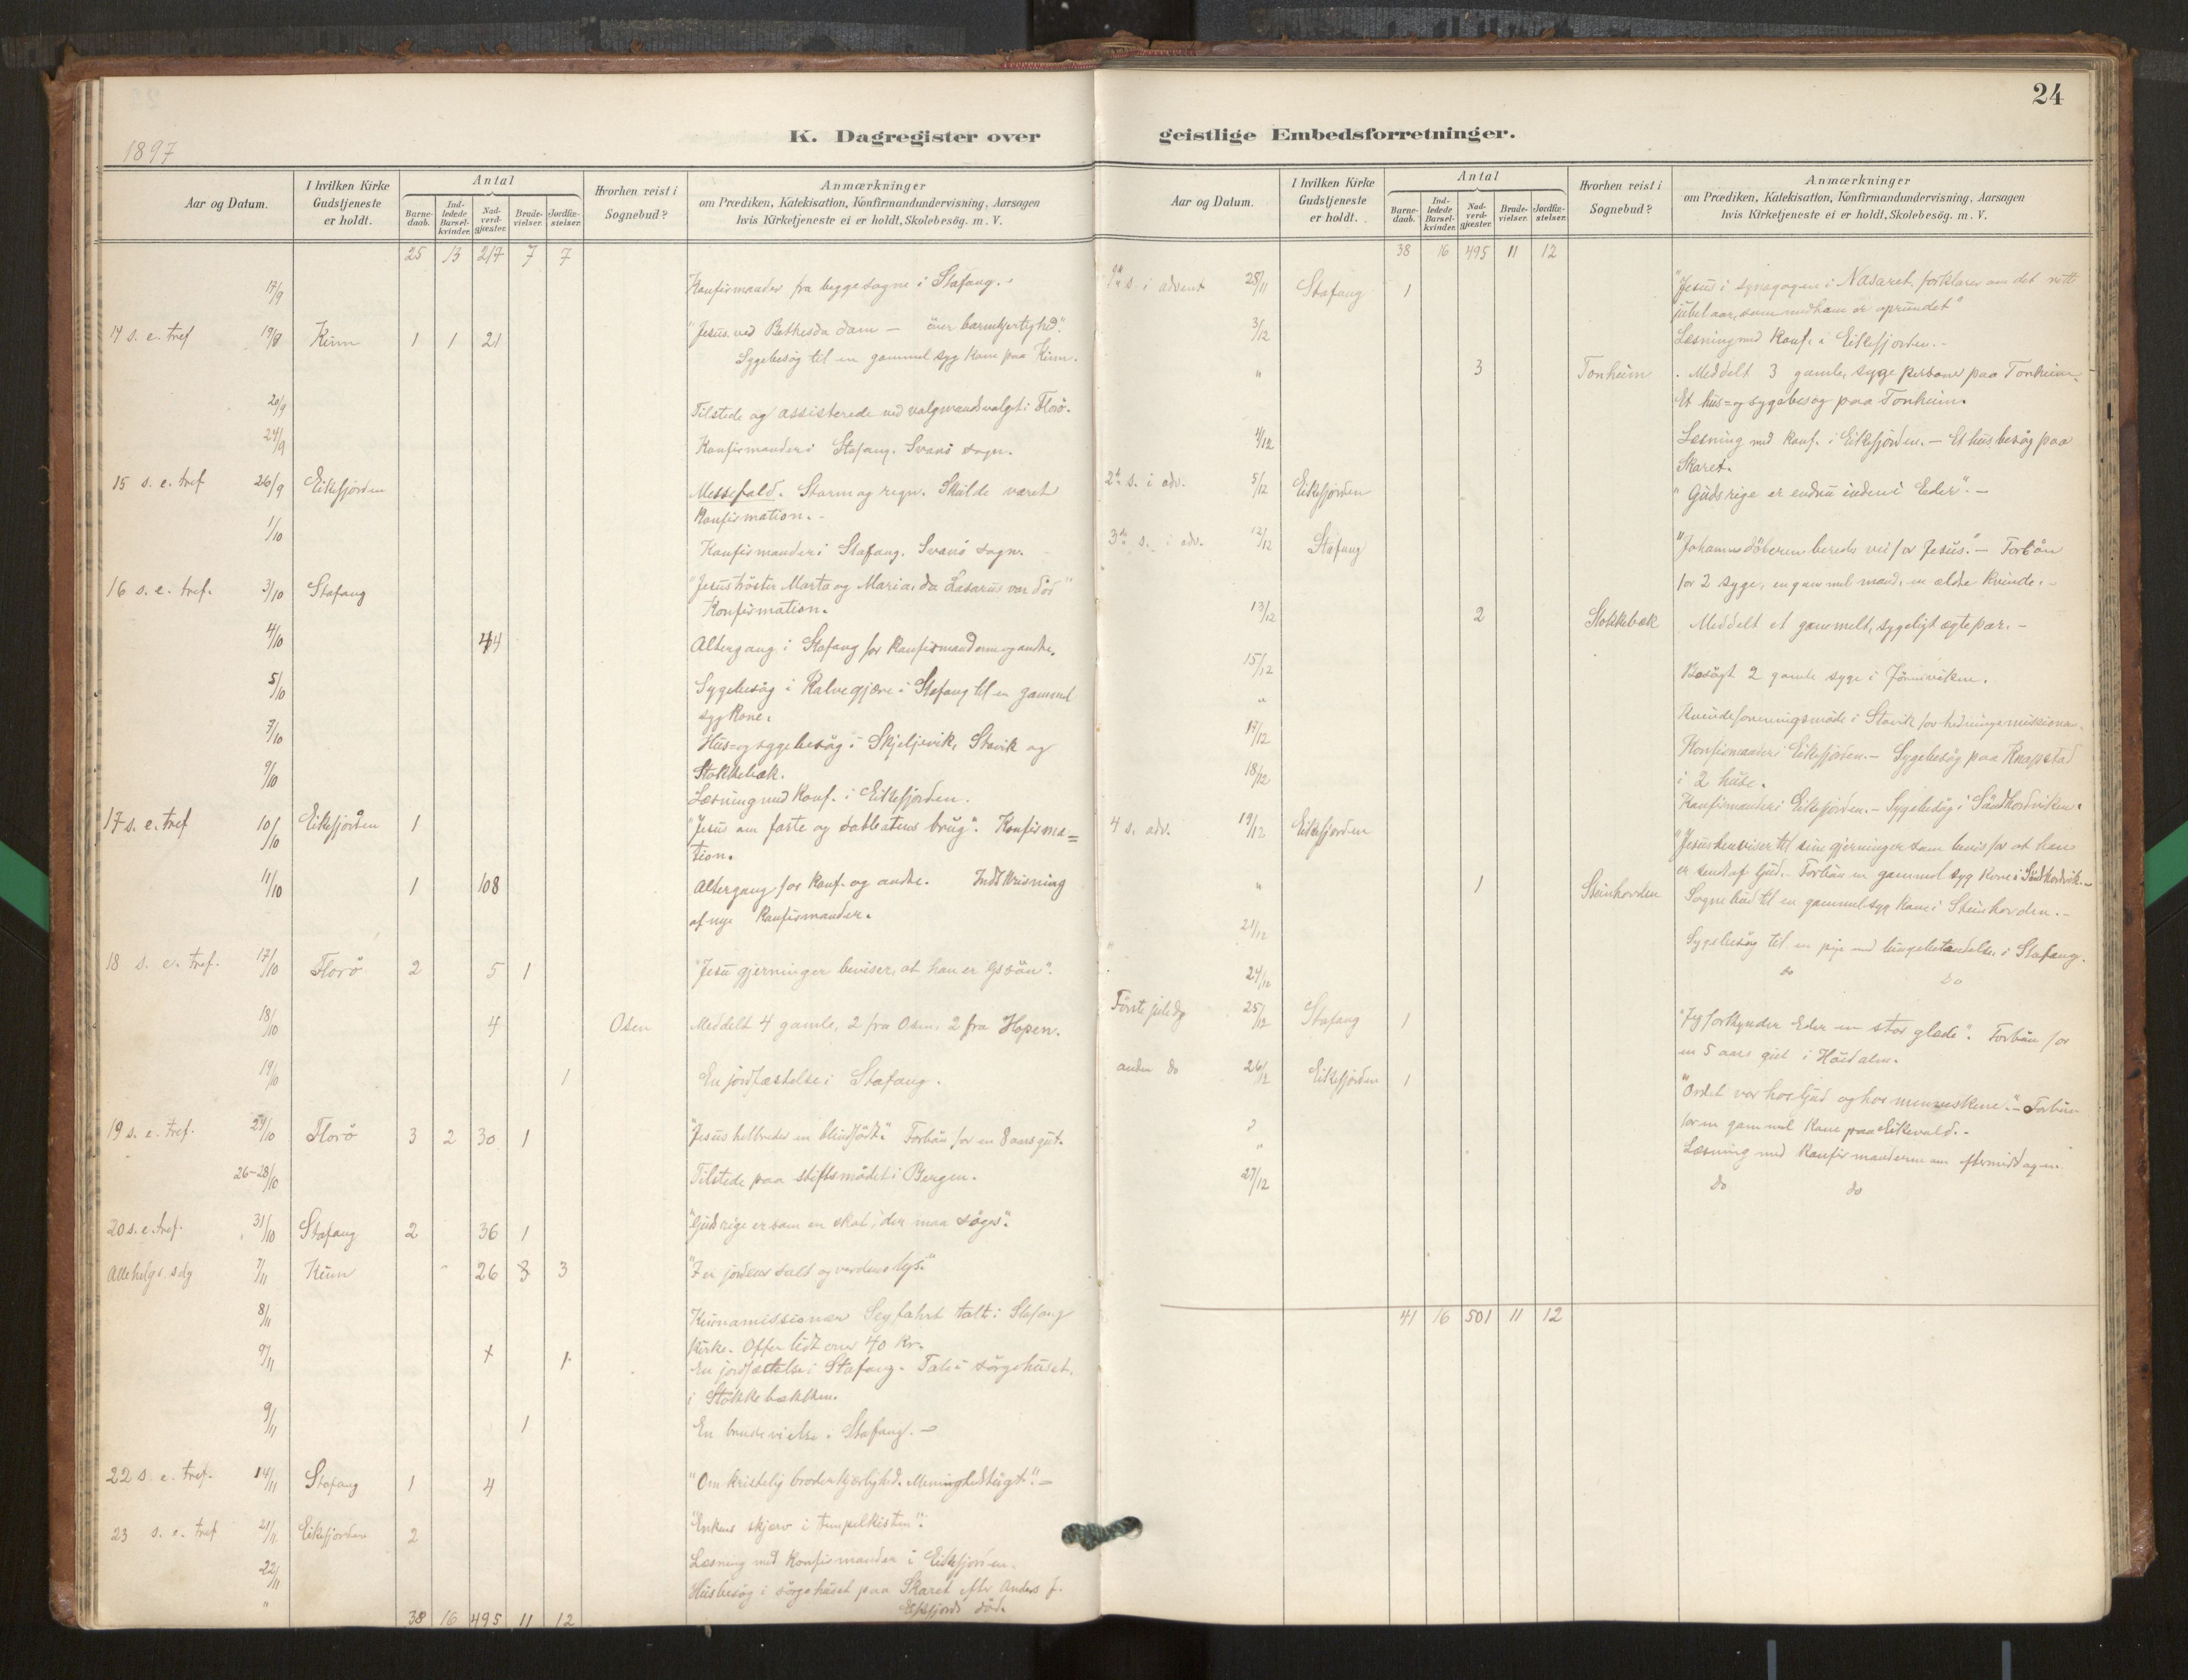 1897
K. Dagregister over
Aar og Datum.
I hvilken Kirke Gudstjeneste er holdt.
Antal
Barnedaab.
Indledede Barselkvinder.
Nadverdgjæster.
Brudevielser.
Jordfæstelser.
Hvorhen reist i Sognebud?
Anmærkninger
om Prædiken, Katekisation, Konfirmandundervisning, Aarsagen
hvis Kirketjeneste ei er holdt, Skolebesög. m. V.
25 13 217 7 7
17/9 Konfirmander fra begge sogne i Stafang.
14 s. e. tref 19/9 Kinn 1 1 21 "Jesus ved Bethesda dam — barmhjertighed".
Sygebesög til en gammel syg kone paa Kinn.
20/9 Tilstede og assisterede ved valgmandsvalget i Florö.
24/9 Konfirmander i Stafang. Svanö sogn.
15 s. e. tref 26/9 Eikefjorden Messefald. Storm og regn. Skulde været
Konfirmation.
1/10 Konfirmander i Stafang. Svanö sogn.
16 s. e. tref. 3/10 Stafang "Jesus tröster Marta og Maria, da Lasarus var död"
Konfirmation.
4/10 44 Altergang i Stafang for konfirmanderne og andre.
5/10 Sygebesög i Kalvegjære i Stafang til en gammel
syg kone.
7/10 Hus= og sygebesög i Skjeljevik, Stavik og
Stokkebæk.
9/10 Læsning med konf. i Eikefjorden.
17 s. e. tref 10/10 Eikefjorden 1 "Jesus om faste og sabbatens brug". Konfirma=
tion.
11/10 1 108 Altergang for konf. og andre. Indskrivning
af nye konfirmander.
18 s. e. tref. 17/10 Florö 2 5 1 "Jesu gjerninger beviser, at han er Gs sön".
18/10 4 Osen Meddelt 4 gamle, 2 fra Osen, 2 fra Hopen.
19/10 1 En jordfæstelse i Stafang.
19 s. e. tref. 24/10 Florö 3 2 30 1 "Jesus helbreder en blindfödt." Forbön for en 8 aars gut.
26-28/10 Tilstede paa stiftsmödet i Bergen.
20 s. e. tref. 31/10 Stafang 2 36 1 "Guds rige er som en skat, der maa söges".
Allehelgs sdg 7/11 Kinn 26 3 3 "I er jordens salt og verdens lys."
8/11 Kinamissionær Seyfahrt talte i Stafang
kirke. Offer lidt over 40 kr.
9/11 1 En jordfæstelse i Stafang. Tale i sörgehuset
i Stokkebækken.
9/11 1 En brudevielse i Stafang.
22 s. e. tref. 14/11 Stafang 1 4 "Om kristelig broderkjærlighed. Menighedstugt". —
23 s. e. tref 21/11 Eikefjorden 2 "Enkens skjærv i tempelkisten".
22/11 Læsning med konfirmander i Eikefjorden.
" Husbesög i sörgehuset paa Skaret efter Anders J.
Eikefjords död.
38 16 495 11 12
24
geistlige Embedsforretninger.
Aar og Datum.
I hvilken Kirke Gudstjeneste er holdt.
Antal
Barnedaab.
Indledede Barselkvinder.
Nadverdgjæster.
Brudevielser.
Jordfæstelser.
Hvorhen reist i Sognebud?
Anmærkninger
om Prædiken, Katekisation, Konfirmandundervisning, Aarsagen
hvis Kirketjeneste ei er holdt, Skolebesög. m. V.
38 16 495 11 12
s. i advent 28/11 Stafang 1 "Jesus i synagogen i Nasaret forklarer om det rette
jubelaar, som med ham er oprundet"
3/12 Læsning med konf. i Eikefjorden.
" 3 Tonheim Meddelt 3 gamle, syge personer paa Tonheim.
Et hus= og sygebesög paa Tonheim.
4/12 Læsning med konf. i Eikefjorden. — Et husbesög paa
Skaret.
2 s. i adv. 5/12 Eikefjorden "Guds rige er endnu inden i Eder". —
3 s. i adv. 12/12 Stafang "Johannes döberen bereder vei for Jesus." — Forbön
for 2 syge, en gammel mand, en ældre kvinde.
13/12 2 Stokkebæk Meddelt et gammelt, sygeligt ægtepar. —
15/12 Besögt 2 gamle syge i
" Kvindeforeningsmöde i Stavik for hedningemissionen.
17/12 Konfirmander i Eikefjorden. — Sygebesög paa Knapstad
i 2 huse.
18/12 Konfirmander i Eikefjorden. — Sygebesög i
4 s. adv. 19/12 Eikefjorden "Jesus henviser til sine gjerninger som bevis for at han
er sendt af Gud. — Forbön en gammel syg kone i
" 1 Steinhovden Sognebud til en gammel syg kone i Steinhovden. —
21/12 Sygebesög til en pige med lungebetændelse i Stafang.
24/12 do do
Förste juledg 25/12 Stafang 1 "Jeg forkynder Eder en stor glæde". Forbön for
en 5 aars gut i
anden do 26/12 Eikefjorden 1 "Ordet var hos Gud og hos menneskene." — Forbön
for en gammel kone paa Eikevold. —
" Læsning med konfirmanderne om eftermiddagen
27/12 do do
41 16 501 11 12